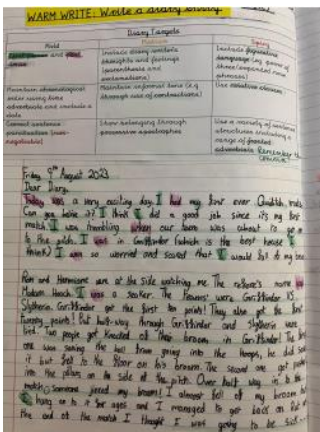 WARM WRITE: Write a diary entry.
Diary Targets
Mild
Spicy
Include diary writer's
thoughts and feelings
(parenthesis and
exclamations)
Include figurative
language (eg power of
three/expanded noun
phrases)
Maintain chronological
order using time
adverbials and include a
date
Maintain informal tone (e.g
through use of contractions)
Use relative clauses
Correct sentence
punctuation (non-
negotiable)
Show belonging through
possessive apostrophes
Use a variety of sentence
structures including a
range of fronted
adverbials Remember the
Friday 9th August 2023
Dear Diary,
Today was a very exciting day. I had my first ever Quidditch match.
Can you beine it? I think I did a good job since its my first
match. I was trembling when our team was about to get on
to the pitch. I was in Griffindor (which is the best house I
think) I was so worried and scared that I would fall of my broom
Ron and Hermione are at the side watching me. The referee's name was
Madam Hooch. I was a seeker. The teams were Griffindor VS
Slytherin. Griffindor got the first ten points! They also got the first
Twenty points! But half-way through Griffindor and Slytherin were
tied. Two people got knocked of their broom in Griffindor! The first
one was saving the ball from going into the hoops, he did save
it but fell to the floor on his broom. The second one got pushed
into the pillars on the side of the pitch. Over half way in to the
match, someone jinxed my broom! I almost fell of my broom
hang on to it for ages and I managed to get back on but
the end of the match I thought I was going to be sick